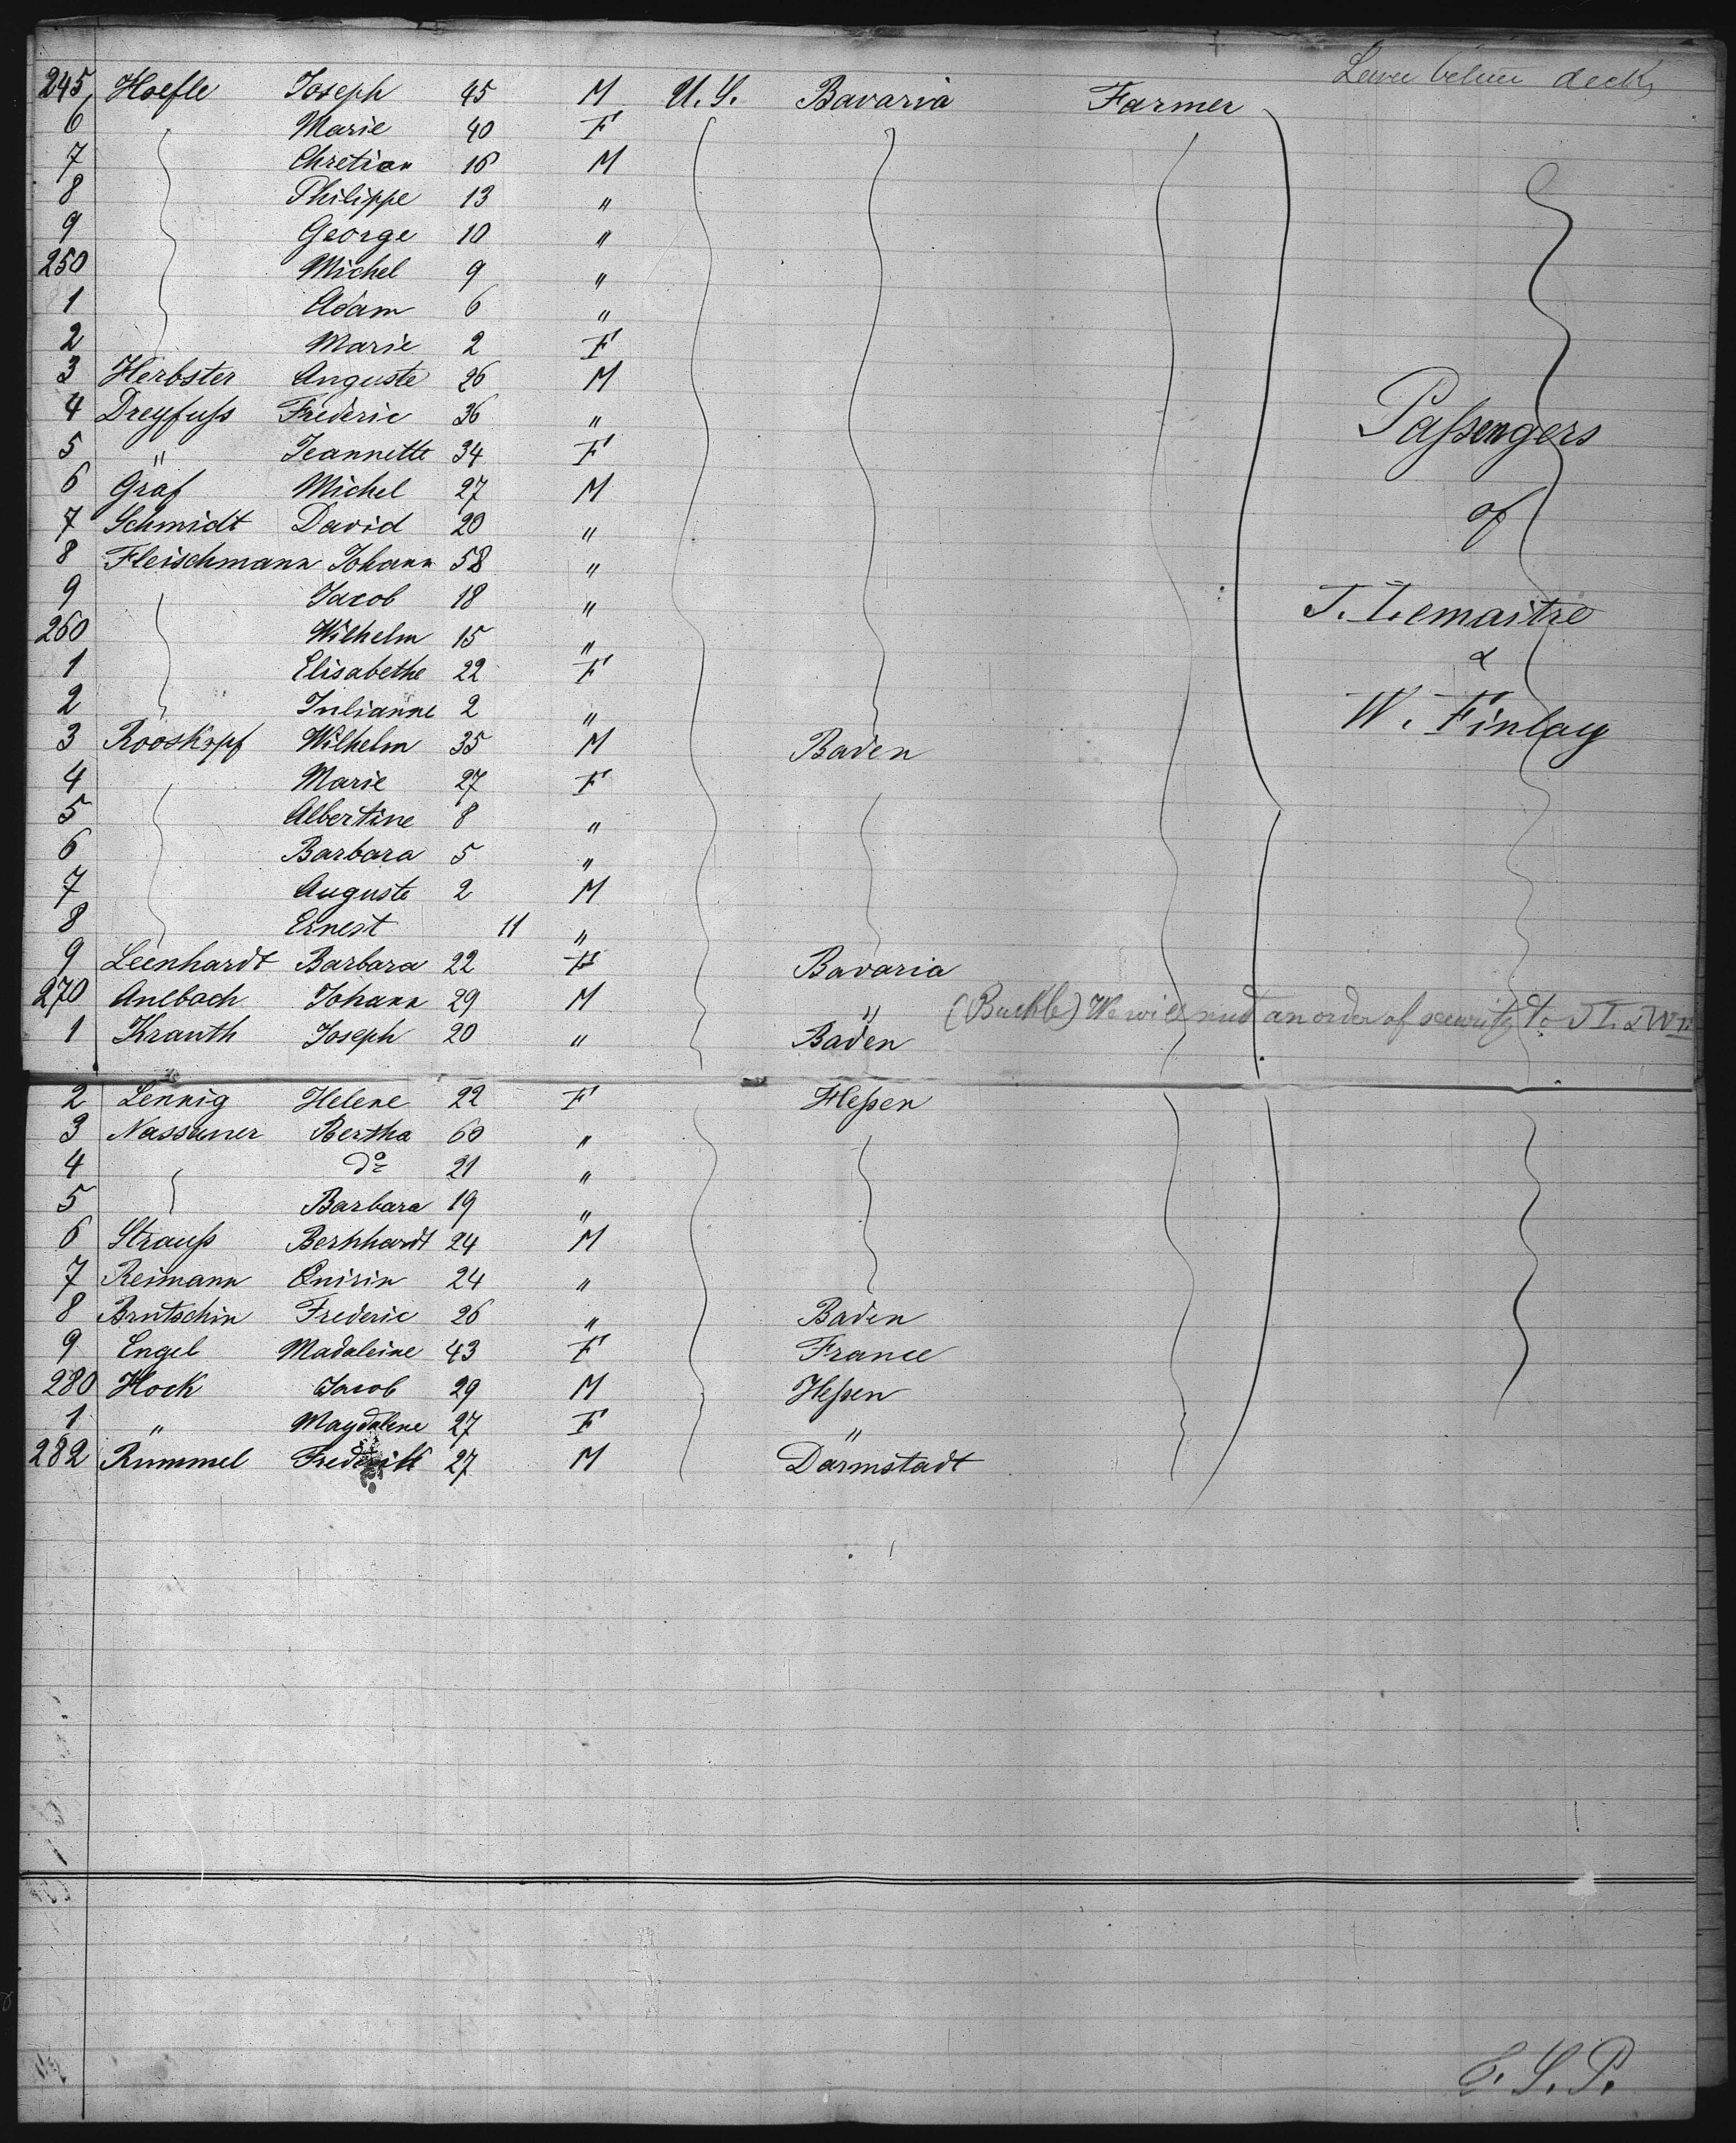 Lower between decks
245 Hoefle Joseph 45 M U.S. Bavaria Farmer
6 Marie 40 F
7 Chretian 16 M
8 Philippe 13 "
9 George 10 "
250 Michel 9 "
1 Adam 6 "
2 Marie 2 F
3 Herbster Auguste 26 M
4 Dreyfuss Frederic 36 "
5 " Jeannette 34 F
6 Graf Michel 27 M
7 Schmidt David 20 "
8 Fleischmann Johann 58 "
9 Jacob 18 "
260 Wilhelm 15 "
1 Elisabethe 22 F
2 Julianne 2 "
3 Rooskopf Wilhelm 35 M Baden
4 Marie 27 F
5 Albertine 8 "
6 Barbara 5 "
7 Auguste 2 M
8 Ernest 11 "
9 Leenhardt Barbara 22 F Bavaria
270 Aulbach Johann 29 M "
(Buckle) We will an order of security to
1 Kranth Joseph 20 " Baden
2 Lennig Helene 22 F Hessen
3 Nassauer Bertha 60 "
4 do 21 "
5 Barbara 19 "
6 Strauss Bernhardt 24 M
7 Reimann Quirin 24 "
8 Brutschin Frederic 26 " Baden
9 Engel Madaleine 43 F France
280 Hock Jacob 29 M Hessen
1 " Magdalene 27 F "
282 Rummel Frederik 27 M Darmstadt
Passengers
of
J. Lemaitre
&
W. Finlay
E. S. P.